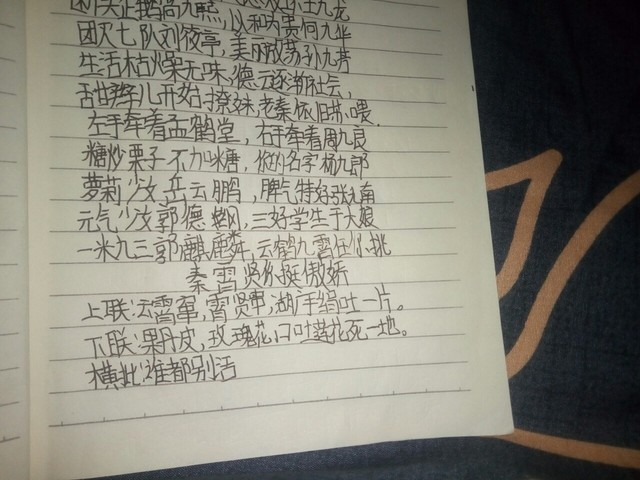 关正鹅高九熙,以和为贵何九华
团灭七队刘筱亭,美丽孙九芳
生活枯燥无味,德云逐渐社会,
甜弹儿开始撩妹,老秦依旧苏、喂.
左手牵着孟鹤堂,右手牵着周九良
糖炒栗子不加糖,你的名字杨九郎
萝莉少女岳云鹏,脾气特好张九南
元气少女郭德纲,三好学生于大娘
一米九三郭麒麟,云鹤九霄任你挑
秦霄贤你挺傲娇
上联:云霄军,霄贤串,湖广手绢吐一片。
下联:果丹皮,玫瑰花,口吐莲花死一地。
横批:谁都别活